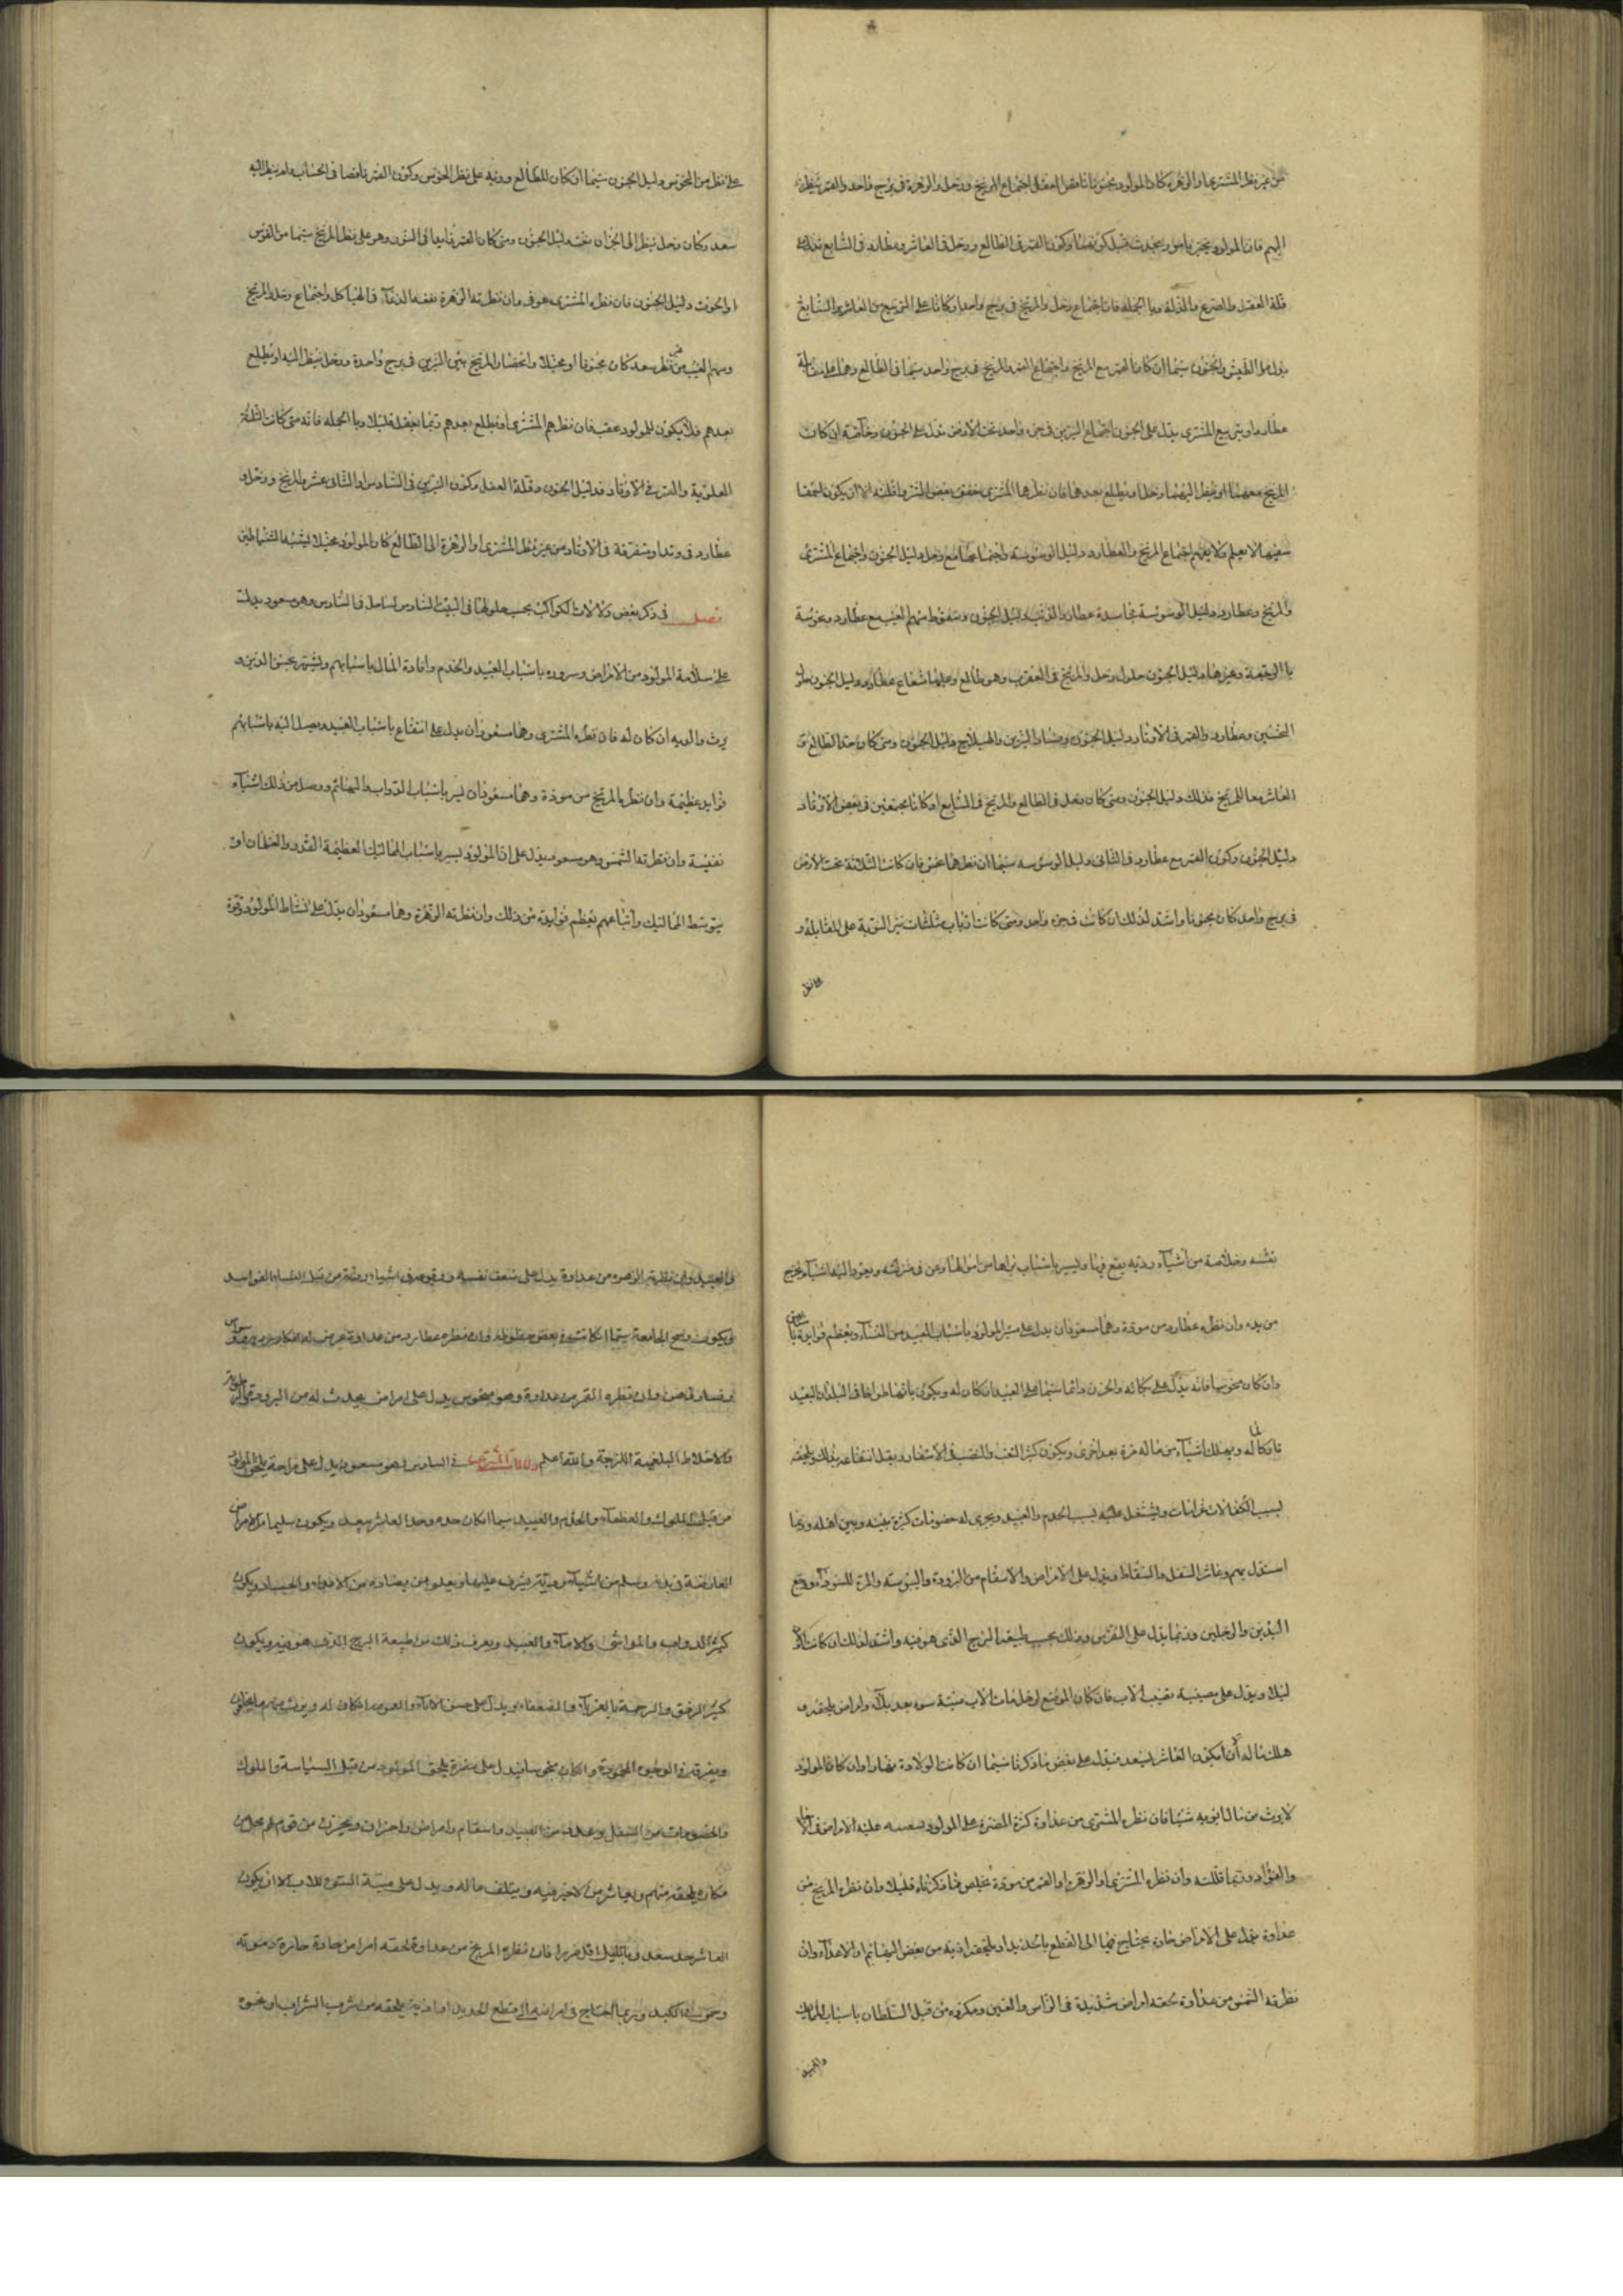 من غير نظر المشتري او الزهرة كان المولود مجنونا ناقص العقل اجتماع المريخ وزحل والزهرة في برج واحد والقمر ينظر
اليهم فان المولود يخبر بامور يحدث قبل كونها وكون القمر في الطالع وزحل في العاشر وعطارد في السابع يدل على
قلة العقل والصرع والمذلة وبا الجملة فان اجتماع زحل والمريخ في برج واحد او كانا على التربيع من العاشر والسابع
يدل على الطيش والجنون سيما ان كان القمر مع المريخ واجتماع القمر والمريخ في برج واحد سيما في الطالع وهما على مقابلة
عطارد او تربيع المشتري يدل على الجنون اجتماع النيرين في جزء واحد تحت الارض يدل على الجنون وخاصة ان كان
المريخ معهما او ينظر اليهما وزحل يطلع بعدهما فان نظرهما المشتري خفف بعض الشر واقلته الا ان يكون احمقا
سفيها لا يعلم ولا يفهم اجتماع المريخ والعطارد دليل الوسوسه واجتماعهما مع زحل دليل الجنون واجتماع المشتري
والمريخ وعطارد دليل الوسوسة مجاسدة عطارد الذنب دليل الجنون وسقوط سهم الغيب مع عطارد ونحوسة
با الرجعة وغيرها دليل الجنون حلول زحل والمريخ في العقرب وهو طالع وعليهما شعاع عطارد دليل الجنون حلول
النحسين وعطارد والقمر في الاوتاد دليل الجنون وفساد النيرين والهيلاج دليل الجنون ومتى كان حد الطالع و
العاشر معا للمريخ فذلك دليل الجنون ومتى كان زحل في الطالع والمريخ في السابع او كانا مجتمعين في بعض الاوتاد
دليل الجنون وكون القمر مع عطارد في الثاني دليل الوسوسه سيما ان نظرهما نحس فان كانت الثلاثة تحت الارض
في برج واحد كان مجنونا واشد لذلك ان كانت في جزء واحد ومتى كانت ارباب مثلثات نير النوبة على المقابلة و
على نظر
على نظر من النحوس دليل الجنون سيما ان كان للطالع ورتبه على نظر النحوس وكون القمر ناقصا في الحساب ولم ينظر اليه
سعد وكان زحل ينظر الى الجزء ان نحسه دليل الجنون ومتى كان القمر زايدا في النور وهو على نظر المريخ سيما من القوس
او الحوت دليل الجنون فان نظره المشتري عوفي وان نظرته الزهرة نفعه الدعاء في الهياكل واجتماع زحل والمريخ
وسهم الغيب من غير نظر سعد كان مجنونا او مخبلا وانحصار المريخ بين النيرين في برج واحدة وزحل ينظر اليه او يطلع
بعدهم فلا يكون للمولود عقب فان نظرهم المشتري او يطلع بعدهم ربما يعقل قليلا وبا الجملة فانه متى كانت الثلثة
العلوية والقمر في الاوتاد فدليل الجنون وقلة العقل وكون النيرين في السادس او الثاني عشر والمريخ وزحل و
عطارد في وتد او متفرقة في الاوتاد من غير نظر المشتري او الزهرة الى الطالع كان المولود مخبلا يشبه الشياطين
فصل في ذكر بعض دلالات الكواكب بحسب حلولها في البيت السادس لسا زحل في السادس وهو مسعود يدلت
على سلامة المولود من الامراض وسروره باسباب العبيد والخدم وافادة المال باسبابهم ويشتهر بحسن الدين و
يرث والديه ان كان له فان نظره المشتري وهما مسعودان يدل على انتفاع باسباب العبيد ويصل اليه باسبابهم
فوايد عظيمة وان نظره المريخ من مودة وهما مسعودان يسر باسباب الدواب والبهائم ووصل من ذلك اشياء
نفيسة وان نظرته الشمس وهو مسعود يدل على ان المولود يسير باسباب المماليك العظيمة القدر والغلمان او
يتوسط المماليك واتباعهم يعظم فوايده من ذلك وان نظرته الزهرة وهما مسعودان يدل على نشاط المولود وقوة
نفسه وخلاصه من اشياء رديه يقع فيها ويسير باسباب يراها من امن الهناء وعن في منزلته ويعود اليه اشياء تخرج
من يده وان نظره عطارد من مودة وهما مسعودان يدل على ستر المولود باسباب العبيد من النساء ويعظم فوايده با
وان كان منحوسا فانه يدل على بكائه والحزن دائما سيما على العبيد ان كان له ويكون باقصا طوافا في البلدان البعيد
تاركا له ويهلك اشياء من ماله مرة بعد اخرى ويكون كثير التعب والنصب في الاسفار ويقل انتفاعه بذلك ويلحقه
بسبب الكفالات غرامات ويشتغل عليه بسبب الخدم والعبيد ويجرى له خصومات كثيرة بينه وبين اهله وربما
استقل بهم وعاشر السفل والسقاط ويدل على الامراض والاسقام من البرودة واليبوسه والمرة السوداء ووجع
اليدين والرجلين وربما يدل على النقرس وذلك بحسب طبيعة البرج الذي هو فيه واشد لذلك ان كانت
ليلا ويدل على مصيبة تصيب الاب فان كان الموضع لزحل مات الاب ميتة سوء بعد بلاء وامراض يلحقه و
هلك ماله الا ان يكون العاشر لسعد فيدل على بعض ما ذكرنا سيما ان كانت الولادة نهارا وان كان المولود
لا يرث من مال ابويه شيئا فان نظره المشتري من عداوة كثرة المضرة على المولود عليه الامراض في
والفؤاد وربما قتلته وان نظره المشتري او الزهرة او القمر من مودة تخلص مما ذكرناه قليلا وان نظره المريخ من
عداوة يدل على الامراض حارة يحتاج فيها الى القطع بالحديد او يلحقه اذية من بعض البهائم او الاعداء وان
نظرته الشمس من عداوة لحقه امراض شديدة في الراس والعين ومكروه من قبل السلطان باسباب المماليك
والعبيد
والعبيد وان نظرته الزهره من عداوة يدل على ضعف نفسه ووقوعه في اشياء رديه من قبل النساء الفواسد
ويكون وسخ الجامعة سيما ان كانت في بعض حظوظه وان نظره عطارد من عداوة عرض له افكار رديه
وفساد ذهن وان نظره القمر من عداوة وهو منحوس يدل على امراض يحدث له من البرد
والاخلاط البلغمية اللزجة والله اعلم دلالة المشتري في السادس وهو مسعود يدل على راحة يلحق المولود
من قبل الملوك والعظماء والخدم والعبيد سيما ان كان حده وحد العاشر سعيد ويكون سليما من الامراض
العارضة في بدنه وسلم من اشياء مردية يشرف عليها ويعلو من يعتاده من الاعداء والحساد ويكون
كثير الدواب والمواشي والاماء والعبيد ويعرف ذلك من طبيعة البرج الذي هو فيه ويكون
كثير الرفق والرحمة بالغرباء والضعفاء ويدل على حسن الاباء والعبيد ان كان له ويرث منهم ما يخلفون
ويفرقه في الوجوه المحمودة وان كان منحوسا فيدل على مضرة يلحق المولود من قبل السياسة والملوك
والخصومات من السفل وعداوة من العبيد واسقام وامراض واحزان ويحزن من قوم لهم محل من
مكاره يلحقه منهم ويعاشر من لا خير فيه ويتلف ماله ويدل على ميتة السوء للاب الا ان يكون
العاشر حد سعد وبالليل اقل ضررا فان نظره المريخ من عداوة لحقه امراض حادة حارة دموية
وحمى الكبد وربما احتاج في امراضه الى قطع الحديد او اذية يلحقه من شرب الشراب او نحوه